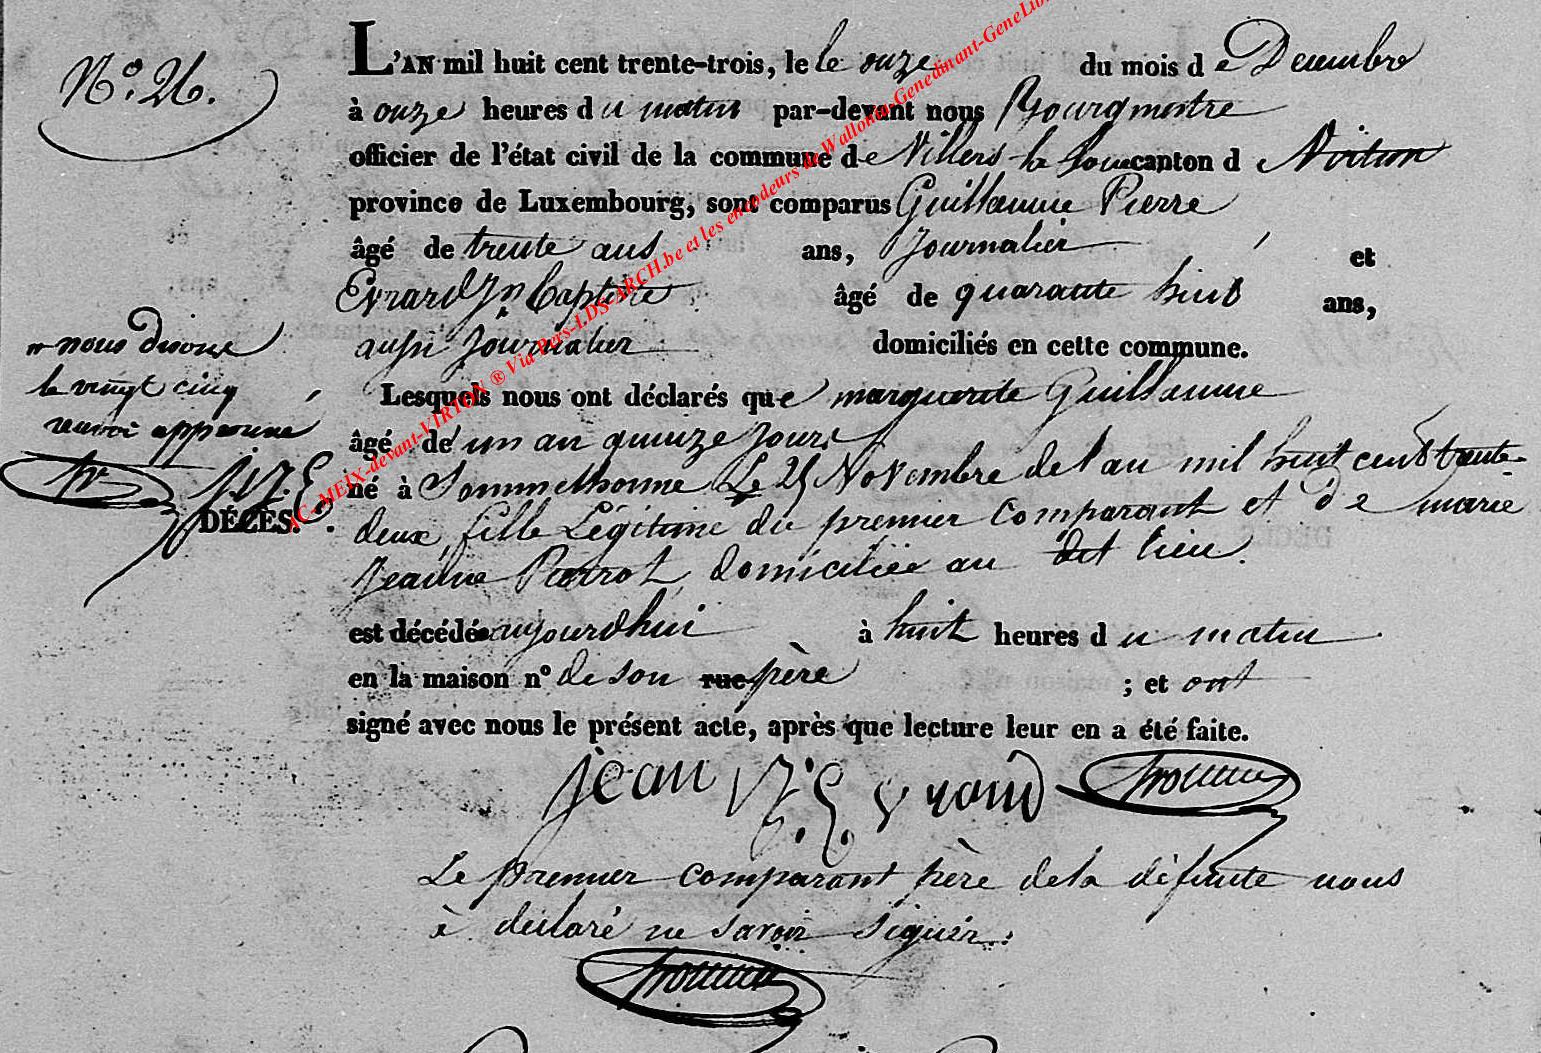 N.° 26.
L'AN mil huit cent trente-trois, le le onze du mois d e Decembre
à onze heures d u matin par-devant nous Bourgmestre
officier de l'état civil de la commune d e Villers la Loue canton d e Virton
province de Luxembourg, sont comparus Guillaume Pierre
âgé de trente ans ans, Journalier et
Evrard Jn Baptiste âgé de quarante huit ans,
aussi Journalier domiciliés en cette commune.
Lesquels nous ont déclarés que marguerite Guillaume
âgé de un an quinze Jours
né à Sommethonne Le 25 Novembre de l an mil huit cent trente-
deux, fille Légitime du premier Comparant et d e marie
Jeanne Pierrot, domiciliée au dit lieu.
est décédée aujourdhui à huit heures d u matin
en la maison n° de son rue père ; et ont
signé avec nous le présent acte, après que lecture leur en a été faite.
nous disons
le vingt cinq
renvoi approuvé
J. B. E.
DÉCÈS.
jean B. E. Evrard
Le premier comparant père de la défunte nous
à déclaré ne savoir signér.
AC-MEIX-devant-VIRTON ® Via Pers-LDS-ARCH.be et les encodeurs de Wallonia-Genedinant-GeneLib